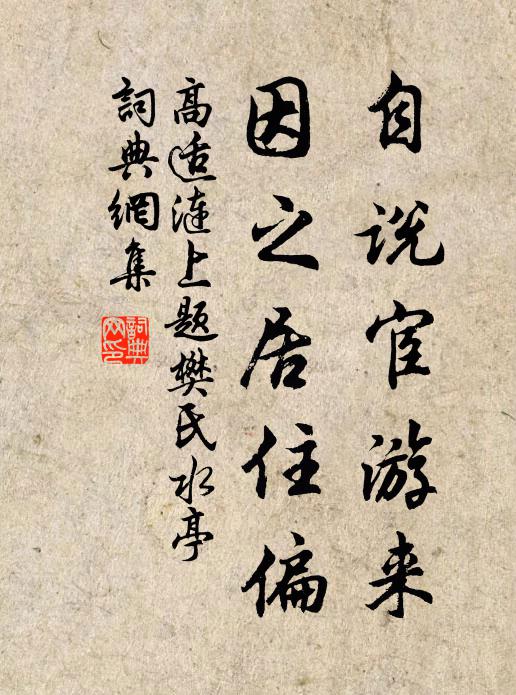 自说宦游来
因之居住偏
高适涟上题樊氏水亭
詞典網集
詞典網印